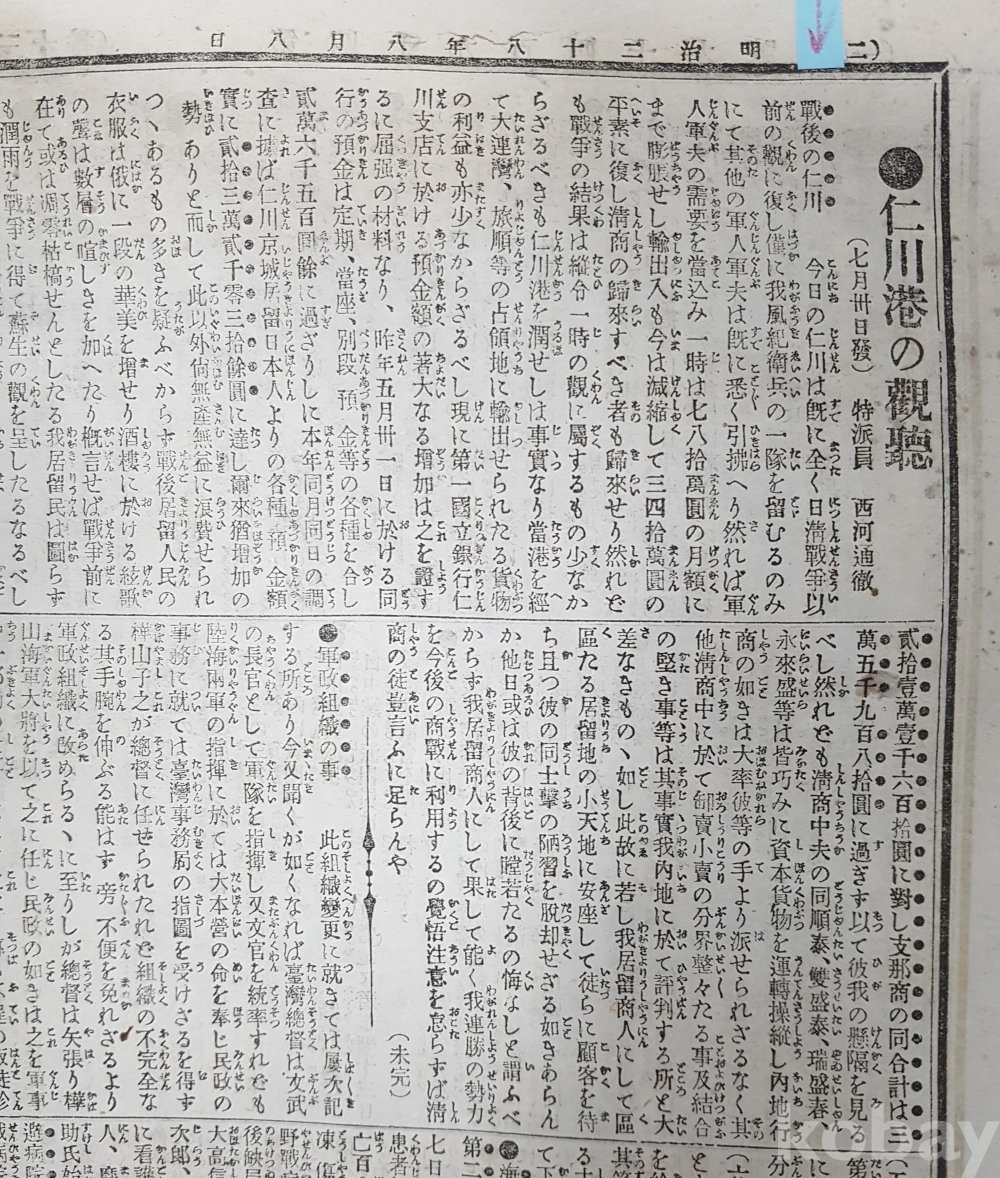 (二
明治二十八年八月八日
●仁川港の觀聽
(七月卅日發) 特派員 西河通徹
戰後の仁川 今日の仁川は旣に全く日淸戰爭以
前の觀に復し僅に我風紀衛兵の一隊を留むるのみ
にて其他の軍人軍夫は旣に悉く引拂へり然れば軍
人軍夫の需要を當込み一時は七八拾萬圓の月額に
まで膨脹せし輸出入も今は減縮して三四拾萬圓の
平素に復し淸商の歸來すべき者も歸來せり然れど
も戰爭の結果は縱令一時の觀に屬するもの少なか
らざるべきも仁川港を潤せしは事實なり當港を經
て大連灣、旅順等の占領地に輸出せられたる貨物
の利益も亦少なからざるべし現に第一國立銀行仁
川支店に於ける預金額の著大なる增加は之を證す
るに屈强の材料なり、昨年五月卅一日に於ける同
行の預金は定期、當座、別段預金等の各種を合し
貳萬六千五百圓餘に過ざりしに本年同月同日の調
査に據れば仁川京城居留日本人よりの各種預金額
實に貳拾三萬貳千零三拾餘圓に達し爾來猶增加の
勢ありと而して此以外尙無產無益に浪費せられ
つゝあるもの多きを疑ふべからず戰後居留人民の
衣服は俄に一段の華美を增せり酒樓に於ける絃歌
の聲は數層の喧しきを加へたり槪言せば戰爭前に
在て或は凋零枯槁せんとしたる我居留民は圖らず
も潤雨を戰爭に得て蘇生の觀を呈したるなるべし
貳拾壹萬壹千六百拾圓に對し支那商の同合計は三
萬五千九百八拾圓に過ぎず以て彼我の懸隔を見る
べし然れども淸商中夫の同順泰、雙盛泰、瑞盛春、
永來盛等は皆巧みに資本貨物を運轉操縱し內地行
商の如きは大率彼等の手より派せられざるなく其
他淸商中に於て卸賣小賣の分界整々たる事及結合
の堅き事等は其事實我內地に於て評判する所と大
差なきものゝ如し此故に若し我居留商人にして區
區たる居留地の小天地に安座して徒らに顧客を待
ち且つ彼の同士擊の陋習を脫却せざる如きあらん
か他日或は彼の背後に瞠若たるの悔なしと謂ふべ
からず我居留商人にして果して能く我連勝の勢力
を今後の商戰に利用するの覺悟注意を怠らずば淸
商の徒豈言ふに足らんや (未完)
●軍政組織の事 此組織變更に就きては屢次記
する所あり今又聞くが如くなれば臺灣總督は文武
の長官として軍隊を指揮し又文官を統率すれども
陸海兩軍の指揮に於ては大本營の命を奉じ民政の
事務に就ては臺灣事務局の指圖を受けざるを得ず
樺山子之が總督に任せられたれど組織の不完全な
る其手腕を伸ぶる能はず旁不便を免れざるより
軍政組織に改めらるゝに至りしが總督は矢張り樺
山海軍大將を以て之に任じ民政の如きは之を軍事
第二
七日
患者
凍傷
亡百
野戰
後映
大高
次郎、
に看護
人、
助氏始
避病院
kobay